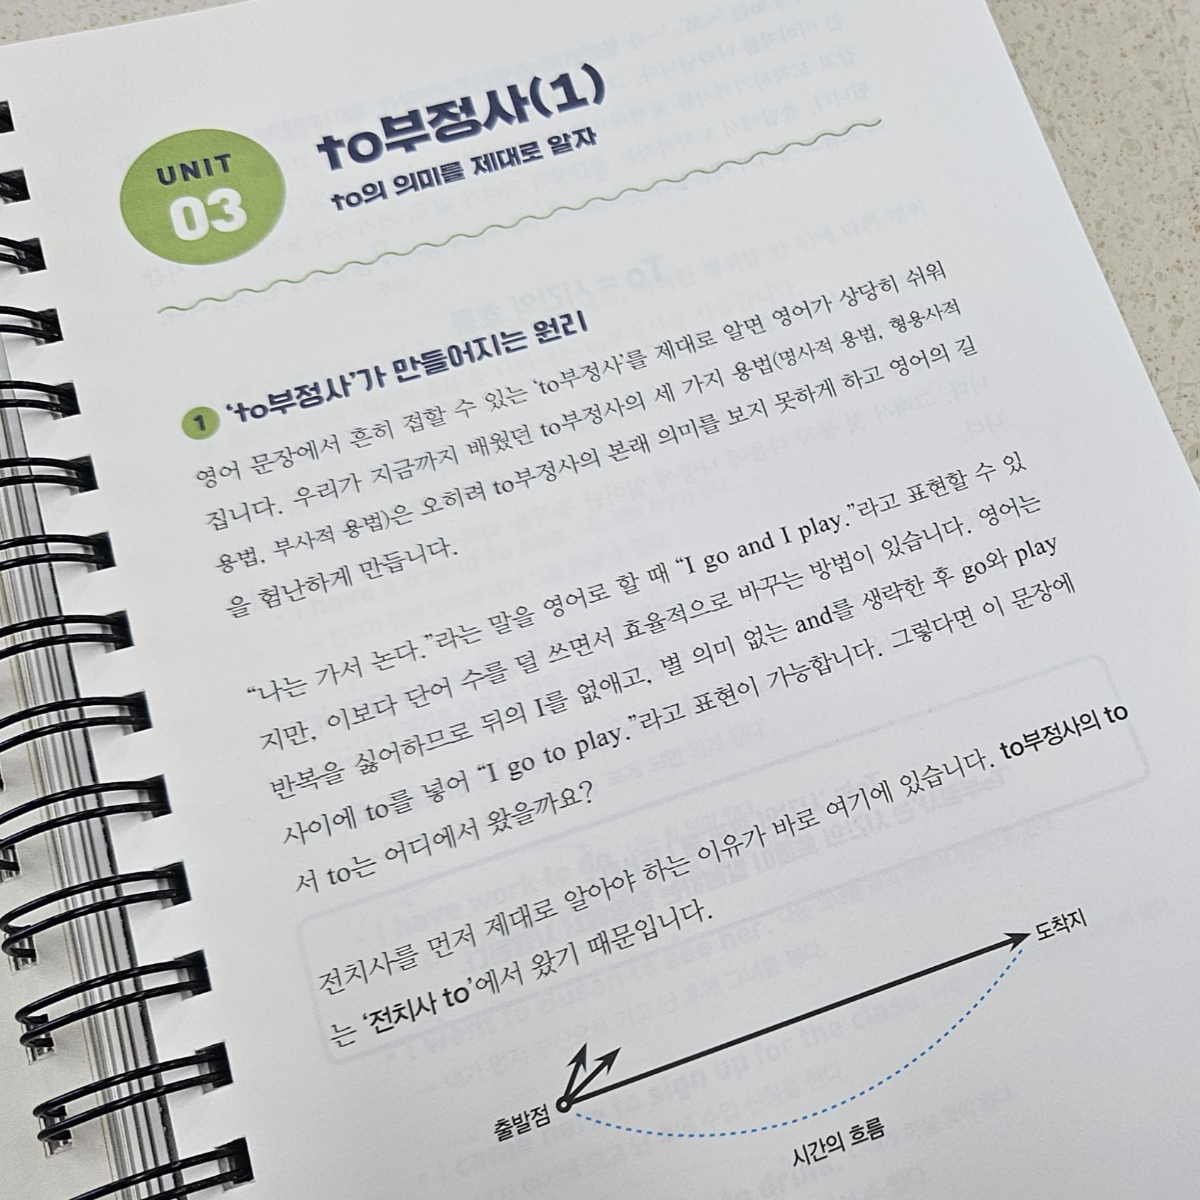 UNIT
03
to부정사(1)
to의 의미를 제대로 알자
1 ‘to부정사’가 만들어지는 원리
영어 문장에서 흔히 접할 수 있는 ‘to부정사’를 제대로 알면 영어가 상당히 쉬워
집니다. 우리가 지금까지 배웠던 to부정사의 세 가지 용법(명사적 용법, 형용사적
용법, 부사적 용법)은 오히려 to부정사의 본래 의미를 보지 못하게 하고 영어의 길
을 험난하게 만듭니다.
“나는 가서 논다.”라는 말을 영어로 할 때 “I go and I play.”라고 표현할 수 있
지만, 이보다 단어 수를 덜 쓰면서 효율적으로 바꾸는 방법이 있습니다. 영어는
반복을 싫어하므로 뒤의 I를 없애고, 별 의미 없는 and를 생략한 후 go와 play
사이에 to를 넣어 “I go to play.”라고 표현이 가능합니다. 그렇다면 이 문장에
서 to는 어디에서 왔을까요?
전치사를 먼저 제대로 알아야 하는 이유가 바로 여기에 있습니다. to부정사의 to
는 ‘전치사 to’에서 왔기 때문입니다.
도착지
출발점
시간의 흐름